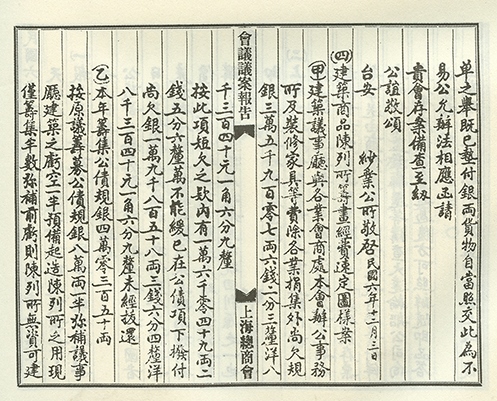 單之舉既已墊付銀兩貨物自當照交此為不
易公允辦法相應函請
貴會存案備查至紉
公誼敬頌
台安 紗業公所敬啓 民國六年十二月三日
(四)建築商品陳列所籌畫經費速定圖樣案
(甲)建築議事廳與各業會商處本會辦公事務
所及裝修家具等費除各業捐集外尚欠規
銀三萬五千九百零七兩六錢一分三釐洋八
會議議案報告
上海總商會
千三百四十九元一角六分九釐
按此項短欠之欵內有一萬六千零四十九兩二
錢五分六釐萬不能緩已在公債項下撥付
尚欠銀一萬九千八百五十八兩三錢六分四釐洋
八千三百四十九元一角六分九釐未經拔還
(乙)本年籌集公債規銀四萬零三百五十兩
按原議籌募公債規銀八萬兩一半弥補議事
廳建築之虧空一半預備起造陳列所之用現
僅籌集半數弥補前虧則陳列所無資可建